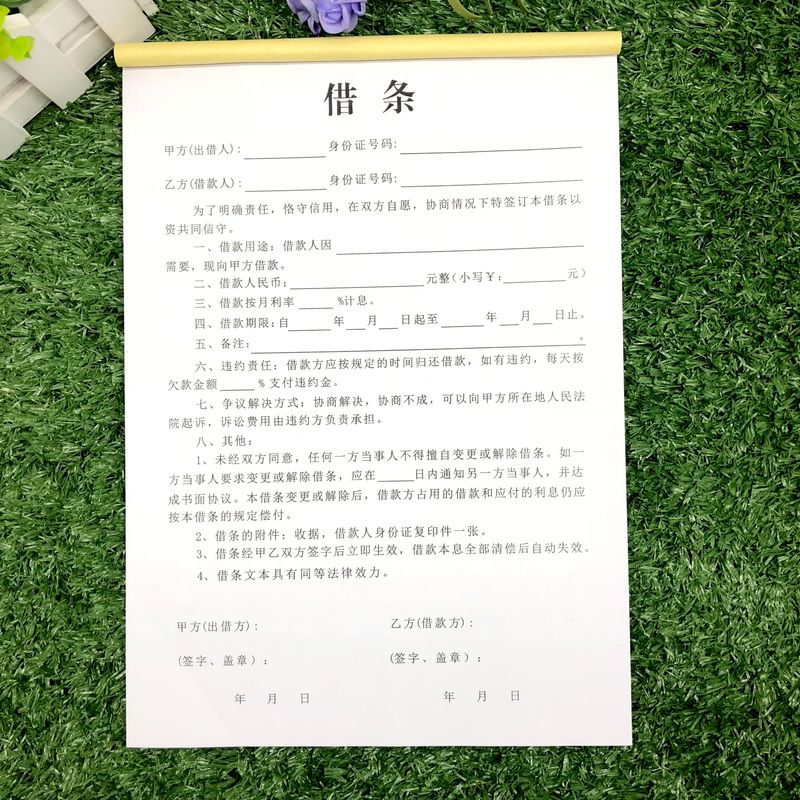 借条
甲方(出借人)：________ 身份证号码：________________
乙方(借款人)：________ 身份证号码：________________
为了明确责任，恪守信用，在双方自愿，协商情况下特签订本借条以
资共同信守。
一、借款用途：借款人因________________________
需要，现向甲方借款。
二、借款人民币：______________元整（小写￥：________元）
三、借款按月利率____%计息。
四、借款期限：自_____年___月___日起至_____年___月___日止。
五、备注：________________________________。
六、违约责任：借款方应按规定的时间归还借款，如有违约，每天按
欠款金额____%支付违约金。
七、争议解决方式：协商解决，协商不成，可以向甲方所在地人民法
院起诉，诉讼费用由违约方负责承担。
八、其他：
1、未经双方同意，任何一方当事人不得擅自变更或解除借条。如一
方当事人要求变更或解除借条，应在____日内通知另一方当事人，并达
成书面协议。本借条变更或解除后，借款方占用的借款和应付的利息仍应
按本借条的规定偿付。
2、借条的附件：收据，借款人身份证复印件一张。
3、借条经甲乙双方签字后立即生效，借款本息全部清偿后自动失效。
4、借条文本具有同等法律效力。
甲方(出借方)： 乙方(借款方)：
(签字、盖章）： (签字、盖章）：
年 月 日 年 月 日